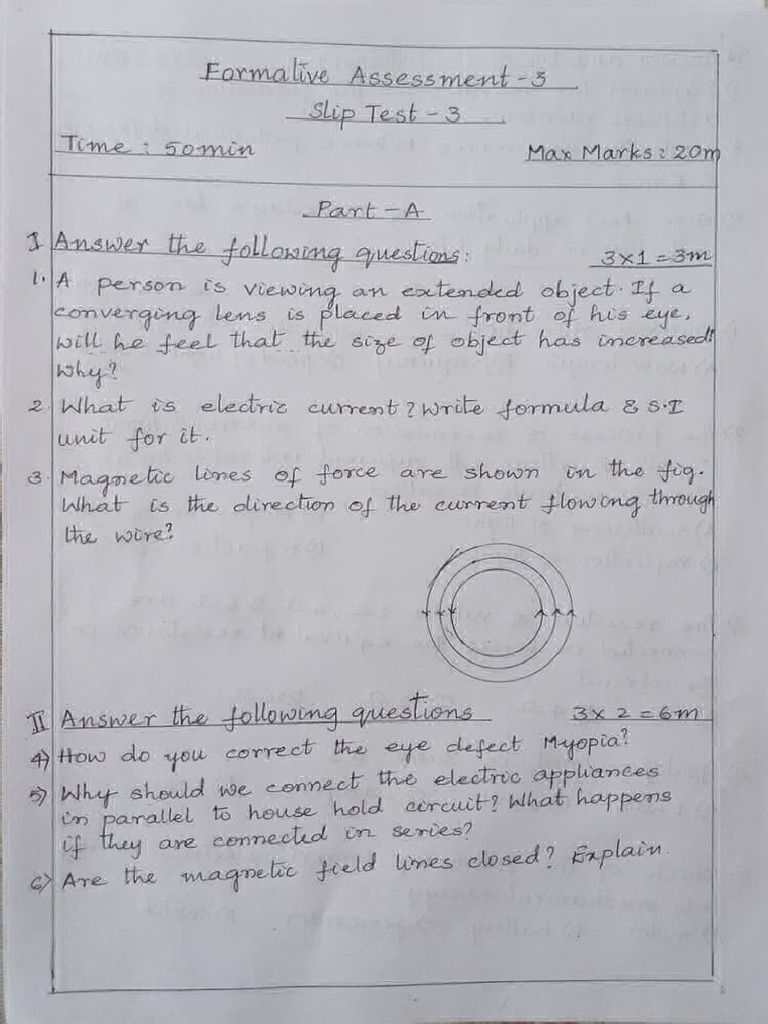 Formative Assessment-3
Slip Test-3
Time: 50min Max Marks: 20m
Part-A
I Answer the following questions: 3x1=3m
1. A person is viewing an extended object. If a
converging lens is placed in front of his eye,
will he feel that the size of object has increased?
Why?
2. What is electric current? Write formula & S.I
unit for it.
3. Magnetic lines of force are shown in the fig.
What is the direction of the current flowing through
the wire?
II Answer the following questions 3x2=6m
4) How do you correct the eye defect Myopia?
5) Why should we connect the electric appliances
in parallel to house hold circuit? What happens
if they are connected in series?
6) Are the magnetic field lines closed? Explain.